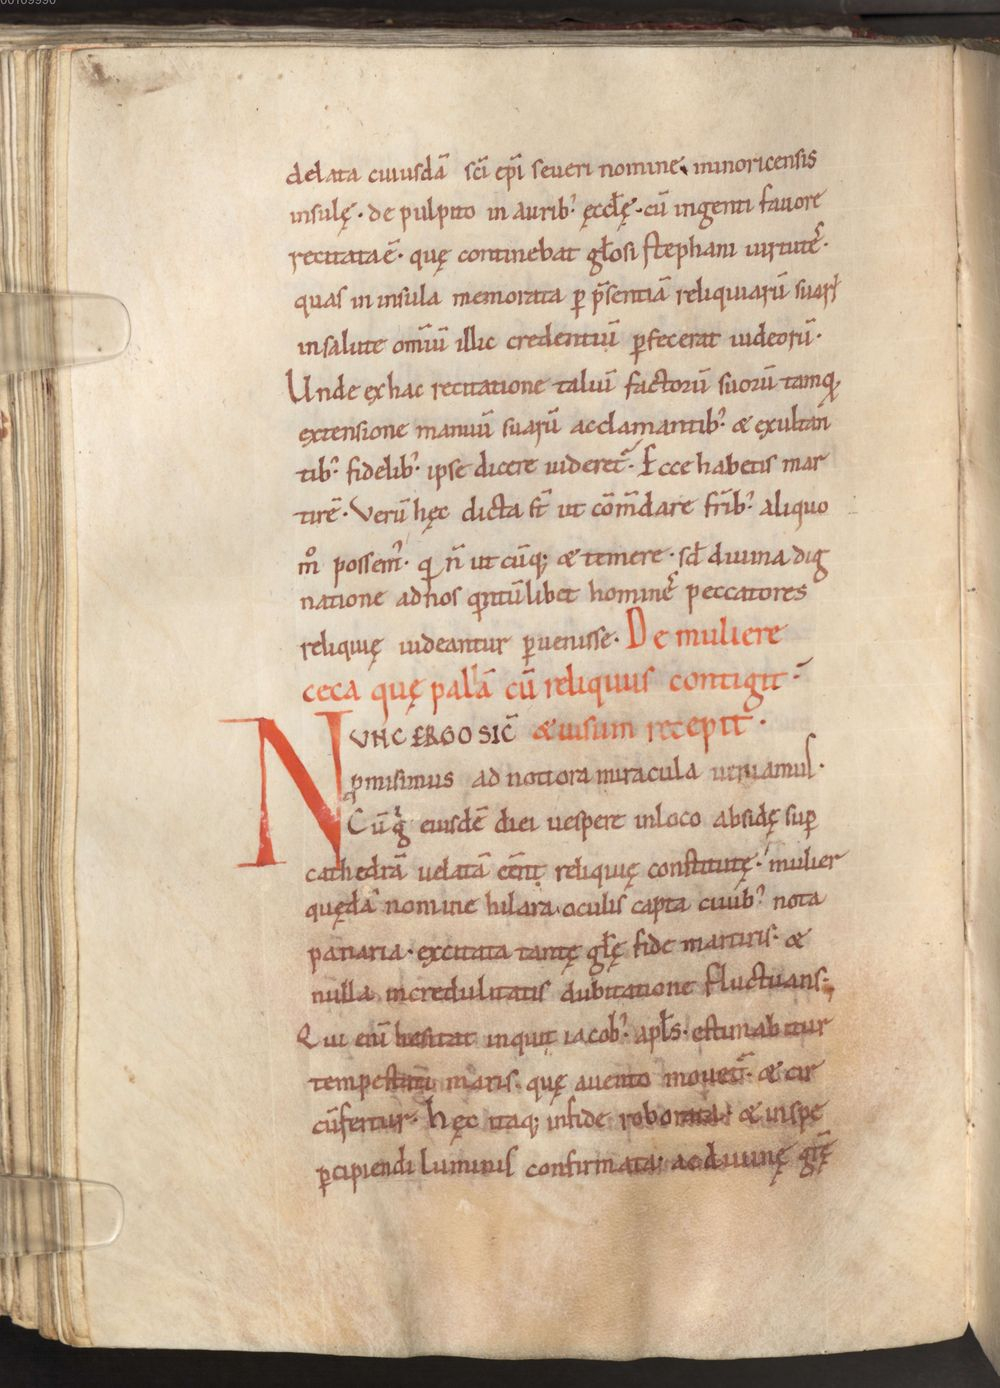 00109990
delata cuiusdā sc̄i ep̄i seueri nomine minoricensis
insulę · de pulpito in aurib; ęccl̄ę · cū ingenti fauore
recitata ē · quę continebat gl̄osi stephani uirtutes̄ ·
quas in insula memorata ꝑ p̄sentiā reliquiarū suaꝝ
in salute om̄iū illic credentiū ꝑfecerat iudeorū ·
Unde ex hac recitatione taliū factorū suorū tamq̄
extensione manuū suarū acclamantib; & exultan
tib; fidelib; ipse dicere uideret̄ · Ecce habetis mar
tirē · Verū hęc dicta st̄ ut cōm̄dare fr̄ib; aliquo
m̊ possem; · q n̄ ut cūq; & temere · sꝫ diuina dig
natione ad nos qntūlibet homines̄ peccatores
reliquię uideantur ꝑuenisse · De muliere
ceca quę palā cū reliquiis contigit ·
NUNC ERGO SIC̄ & uisum recepit ·
ꝓmisimus ad notiora miracula ueniamus ·
Cū g̊ eiusdē diei uespere in loco absidę sup̄
cathedrā uelatā eēnt reliquię constitutę · mulier
quędā nomine hilara · oculis capta ciuib; nota
panaria · excitata tantę gl̄ę fide martiris · &
nulla incredulitatis dubitatione fluctuans ;
Qui enī hesitat inquit iacob; apl̄s · estimabitur
tempestati maris · quę a uento mouet̄ · & cir
cūfertur · Hęc itaq; in fide roborata · & in spe
ꝑcipiendi luminis confirmata · ac diuinę gr̄ę